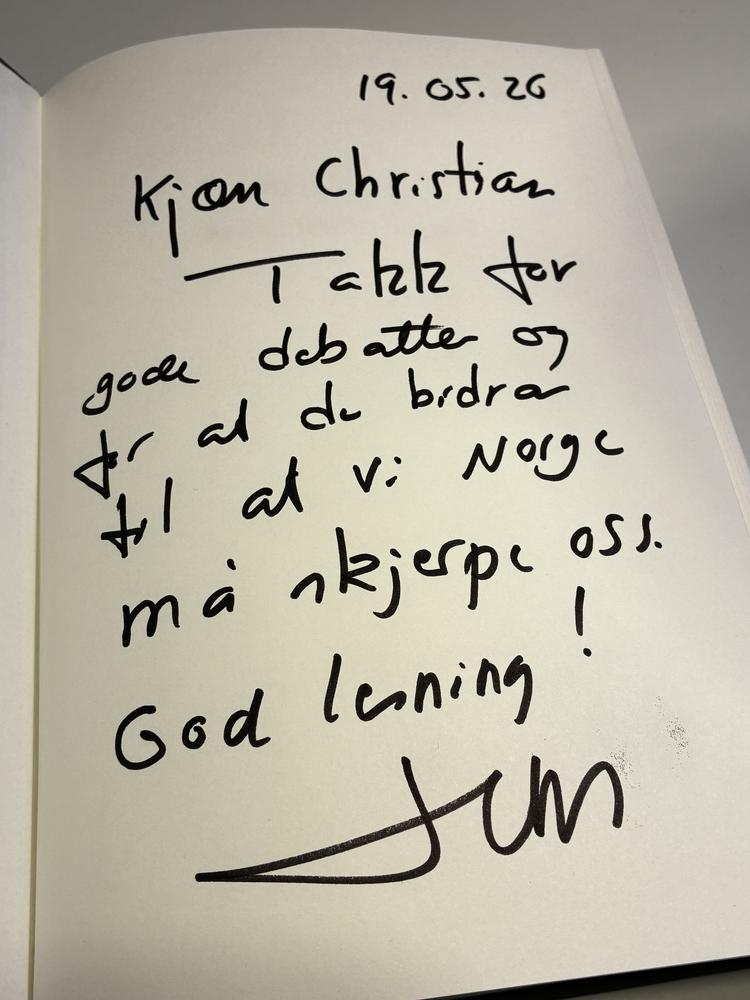 19. 05. 26
Kjære Christian
Takk for
gode debatter og
for at du bidrar
til at vi Norge
må skjerpe oss.
God lesning!
Jens